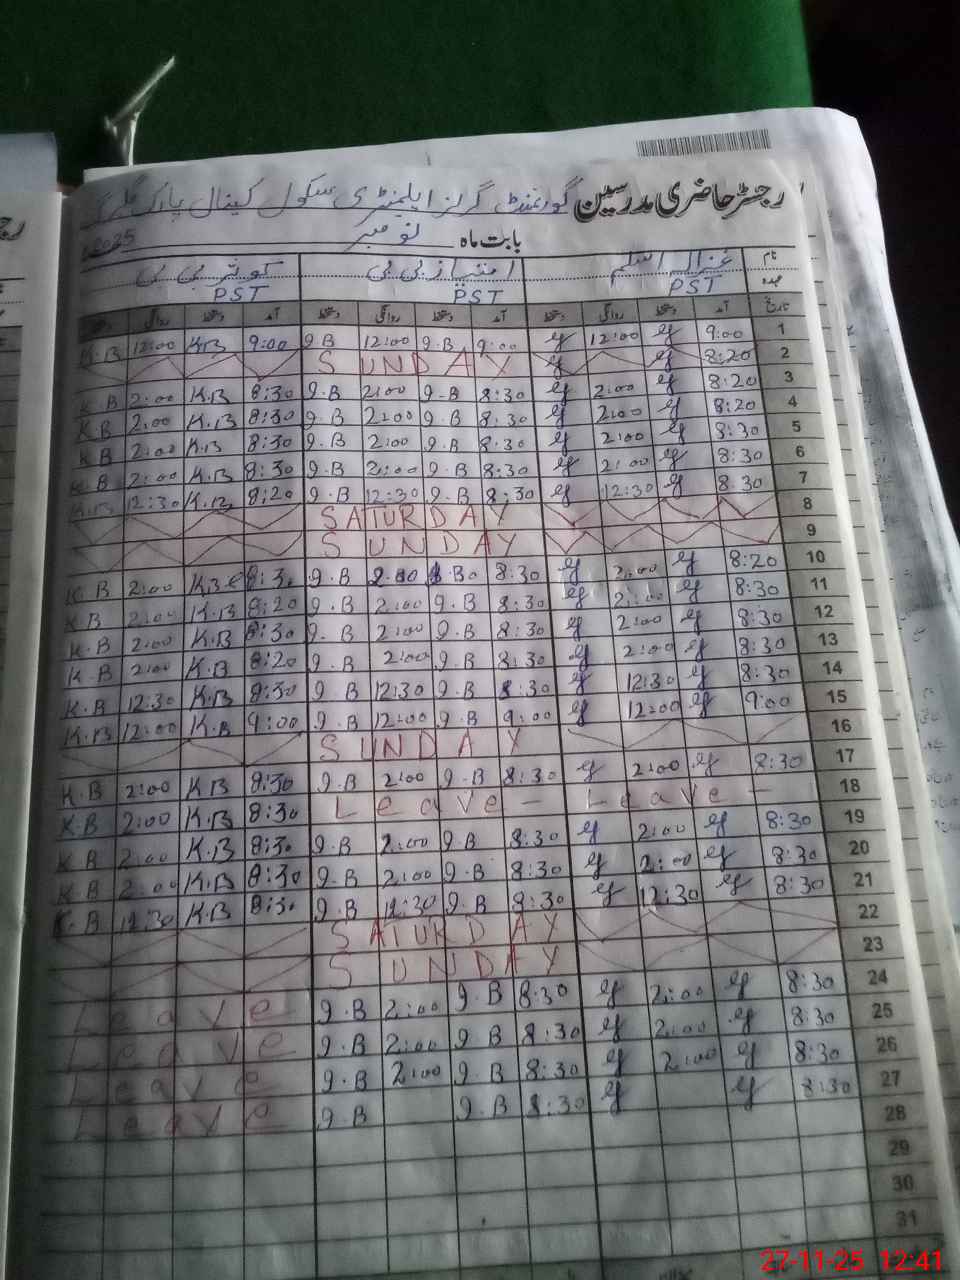 رجسٹر حاضری مدرسین گورنمنٹ گرلز ایلیمنٹری سکول کینال پارک
بابت ماہ نومبر 2025
نام غزالہ اسلم امتیاز بی بی کوثر بی بی
عہدہ PST PST PST
تاریخ آمد دستخط روانگی دستخط آمد دستخط روانگی دستخط آمد دستخط روانگی دستخط
1 9:00 12:00 9:00 9.B 12:00 9.B 9:00 K.B 12:00 K.B
2 8:20 SUNDAY
3 8:20 2:00 8:30 9.B 2:00 9.B 8:30 K.B 2:00 K.B
4 8:20 2:00 8:30 9.B 2:00 9.B 8:30 K.B 2:00 K.B
5 8:30 2:00 8:30 9.B 2:00 9.B 8:30 K.B 2:00 K.B
6 8:30 2:00 8:30 9.B 2:00 9.B 8:30 K.B 2:00 K.B
7 8:30 12:30 8:30 9.B 12:30 9.B 8:20 K.B 12:30 K.B
8 SATURDAY
9 SUNDAY
10 8:20 2:00 8:30 2:00 9.B 8:30 2:00 K.B
11 8:30 2:00 8:30 9.B 2:00 9.B 8:20 K.B 2:00 K.B
12 8:30 2:00 8:30 9.B 2:00 9.B 8:30 K.B 2:00 K.B
13 8:30 2:00 8:30 9.B 2:00 9.B 8:20 K.B 2:00 K.B
14 8:30 12:30 8:30 9.B 12:30 9.B 8:30 K.B 12:30 K.B
15 9:00 12:00 9:00 9.B 12:00 9.B 9:00 K.B 12:00 K.B
16 SUNDAY
17 8:30 2:00 8:30 9.B 2:00 9.B 8:30 K.B 2:00 K.B
18 Leave - Leave - 8:30 K.B 2:00 K.B
19 8:30 2:00 8:30 9.B 2:00 9.B 8:30 K.B 2:00 K.B
20 8:30 2:00 8:30 9.B 2:00 9.B 8:30 K.B 2:00 K.B
21 8:30 12:30 8:30 9.B 12:30 9.B 8:30 K.B 12:30 K.B
22 SATURDAY
23 SUNDAY
24 8:30 2:00 8:30 9.B 2:00 9.B Leave
25 8:30 2:00 8:30 9.B 2:00 9.B Leave
26 8:30 2:00 8:30 9.B 2:00 9.B Leave
27 8:30 8:30 9.B 9.B Leave
28
29
30
31
27-11-25 12:41